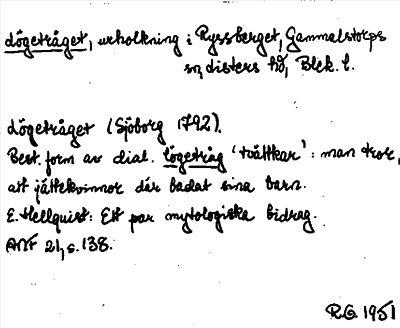 lögetråget, urholkning i Ryssberget, Gammalstorps
sn, Listers hd, Blek. l.
lögetråget (Sjöborg 1792).
Best. form av dial. lögetråg 'tvättkar': man tror,
att jättekvinnor där badat sina barn.
E. Hellquist: Ett par mytologiska bidrag.
ANF 21, s. 138.
R.G. 1951